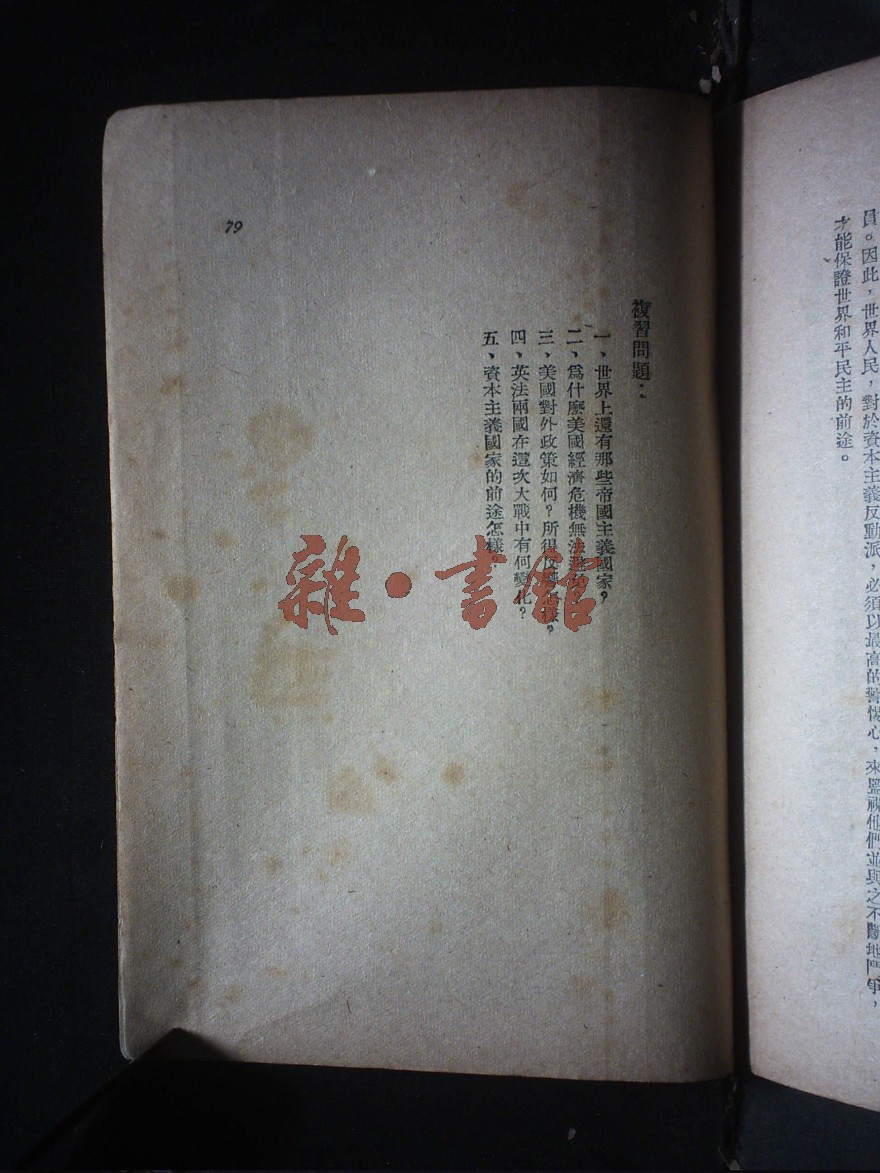 員。因此，世界人民，對於資本主義反動派，必須以最高的警惕心，來監視他們並與之不斷地鬥爭，
才能保證世界和平民主的前途。
複習問題：
一、世界上還有那些帝國主義國家？
二、爲什麼美國經濟危機無法避免？
三、美國對外政策如何？所得反應怎樣？
四、英法兩國在這次大戰中有何變化？
五、資本主義國家的前途怎樣
79
雜·書館